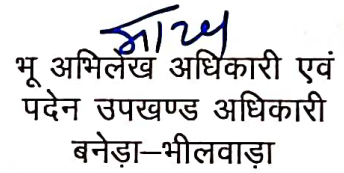 भू अभिलेख अधिकारी एवं
पदेन उपखण्ड अधिकारी
बनेड़ा–भीलवाड़ा